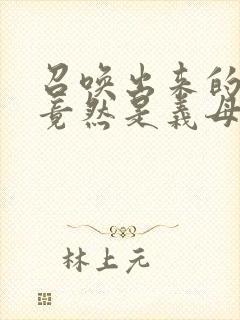 召唤出来的
竟然是义母
林上元